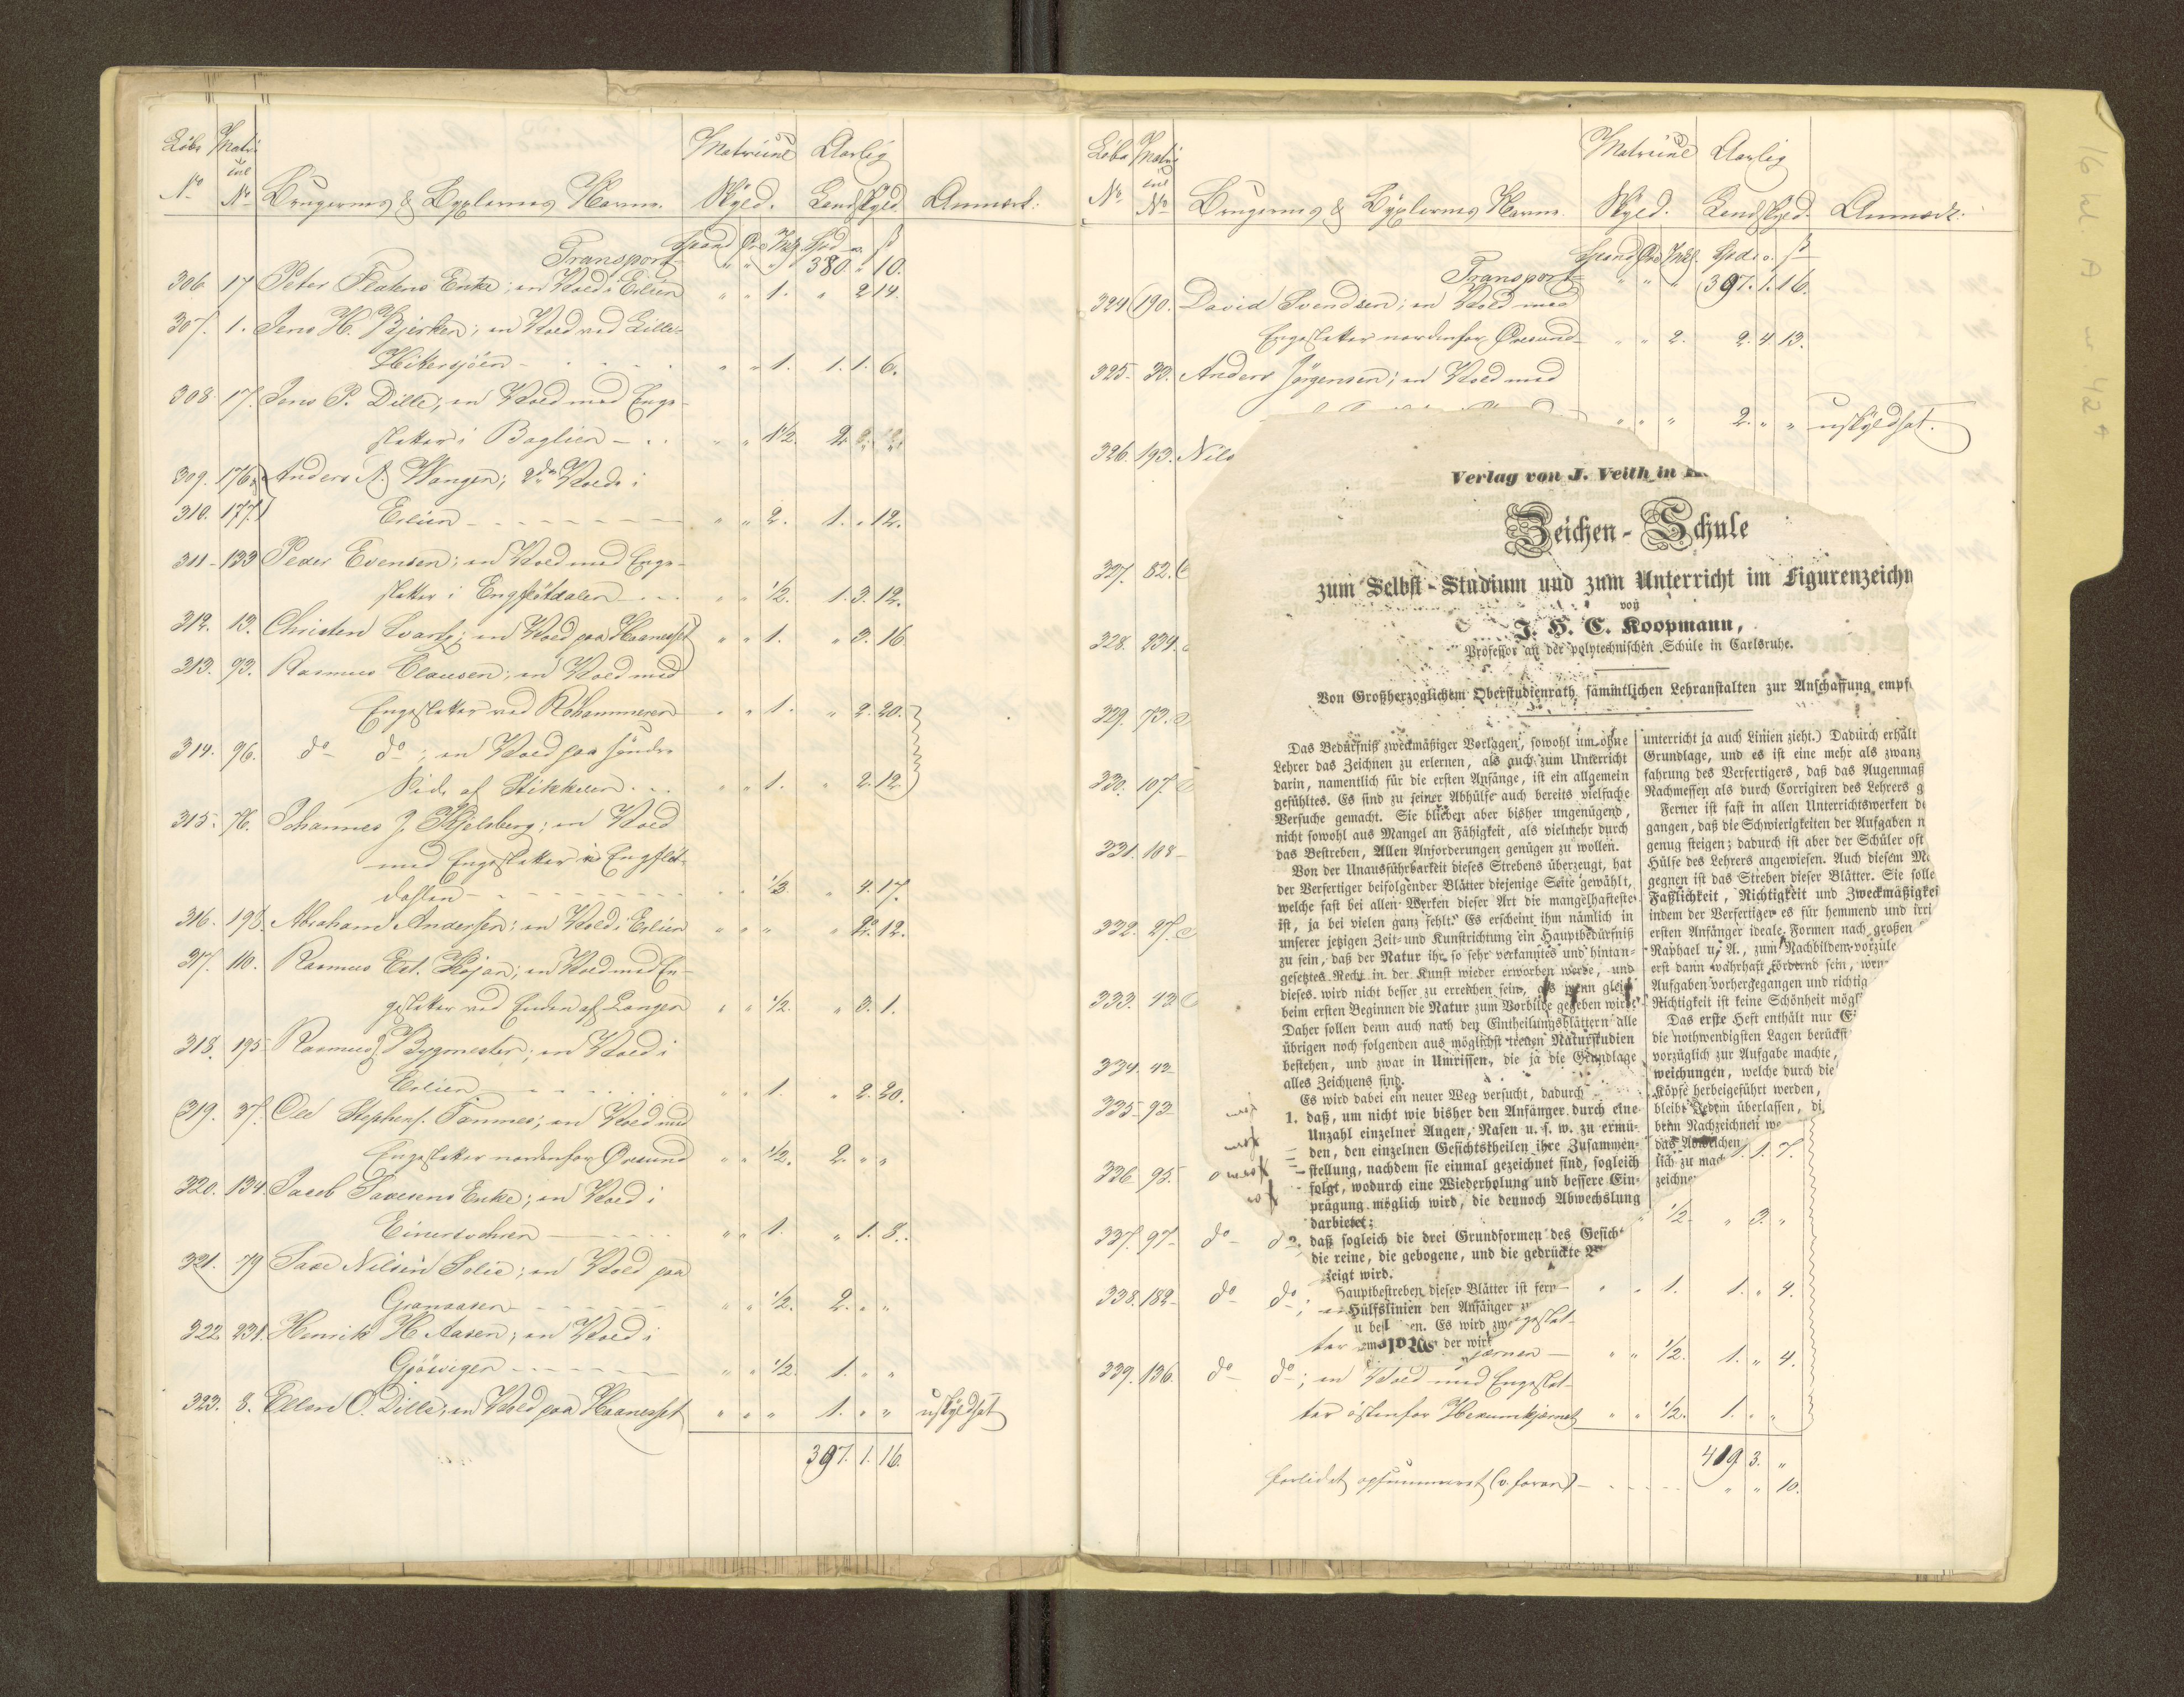 Löbe Matri Matricul Aarlig
cul
No No Brugernes & Byxlernes Navne. Skyld. Landskyld Anmærk:
Spand Öre Mkl. Spd ß
Transport " " " 380 " 10.
306. 17 Peter Flatens Enke; en Vold i Erlien " " 1. " 2 14.
307. 1. Jens H. Bjerken; en Vold ved Lille-
Hikersjöen - " " 1. 1. 1. 6.
308. 17. Jens P. Dille; en Vold med Enge-
sletter i Baglien - " "
309. 176 Anders N. Wangen; 2de Volde i
310. 177 Erlien " " 2. 1. " 12.
311 - 133 Peder Evensen; en Vold med Enge-
sletter i Engslötdalen " " 1/2. 1. 3. 12.
312. 13. Christen Svartz; en Vold paa Haanesset " " 1. " 3. 16
313. 93. Rasmus Clausen; en Vold med
Engesletter ved Röhammeren " " 1. " 2. 20.
314. 96. do do; en Vold paa söndre
Side af Stikkelen " " 1. " 2. 12.
315. 76. Johannes J. Kjelsberg; en Vold
med Engesletter i Engslöt-
dahlen " " 1/3 " 4. 17.
316. 198. Abraham Andersen; en Vold i Erlien " " " " 2. 12.
317. 110. Rasmus Est. Kojan; en Vold med En-
gesletter ved Enden af Langen " " 1/2. " 3. 1.
318. 195 Rasmus Bygmester; en Vold i
Erlien " " 1. " 2. 20.
319. 37. Ole Stephens. Tamnes; en Vold med
Engesletter nordenfor Öresund " " 1/2. 2. " "
320. 134. Jacob Saxesens Enke; en Vold i
Einertvohlen " " 1. " 1. 8.
321. 79 Saxe Nilsen Solie; en Vold paa
Granaasen " " 1/2. 2. " "
322 231. Henrik H. Aasen; en Vold i
Gjösvigen " " 1/2. 1. " "
323. 8. Ellend O. Dille; en Vold paa Haanesset " " " 1. " " uskyldsat
397. 1. 16.
Löbe Matri Matricul Aarlig
cul
No No Brugernes & Byxlernes Navne. Skyld. Landskyld. Anmærk.
Spand Öre Mkl. Spd. o. ß
Transport " " " 397. 1. 16.
324 190. David Svendsen; en Vold med
Engesletter nordenfor Öresund " " 2. 2. 4. 13.
325 - 30. Anders Jörgensen; en Vold med
" " " 2. " " uskyldsat.
326. 193. Nils
327. 82.
328. 234.
329. 73.
330. 107.
331. 188
332. 27.
333. 43
334. 43
335 - 93
336. 95. 1. 1. 7.
337. 97 do 1/2. " 3. "
338. 182 do do; " " 1. 1. " 4.
ter " " 1/2. 1. " 4.
339. 136. do do; en Vold med Engeslet-
ter östenfor Hesumkjærnet " " 1/2. 1. " "
419. 3. "
forlidet opsummeret (v. foran) " " 10.
Verlag von J. Veith in
Zeichen-Schule
zum Selbst-Studium und zum Unterricht im Figurenzeichn
von
J. H. C. Koopmann,
Professor an der polytechnischen Schule in Carlsruhe.
Von Großherzoglichem Oberstudienrath sämmtlichen Lehranstalten zur Anschaffung empf
Das Bedürfniß zweckmäßiger Vorlagen, sowohl um ohne
Lehrer das Zeichnen zu erlernen, als auch zum Unterricht
darin, namentlich für die ersten Anfänge, ist ein allgemein
gefühltes. Es sind zu seiner Abhülfe auch bereits vielfache
Versuche gemacht. Sie blieben aber bisher ungenügend,
nicht sowohl aus Mangel an Fähigkeit, als vielmehr durch
das Bestreben, Allen Anforderungen genügen zu wollen.
Von der Unausführbarkeit dieses Strebens überzeugt, hat
der Verfertiger beifolgender Blätter diejenige Seite gewählt,
welche fast bei allen Werken dieser Art die mangelhafteste
ist, ja bei vielen ganz fehlt. Es erscheint ihm nämlich in
unserer jetzigen Zeit- und Kunstrichtung ein Hauptbedürfniß
zu sein, daß der Natur ihr so sehr verkanntes und hintan-
gesetztes Recht in der Kunst wieder erworben werde, und
dieses wird nicht besser zu erreichen sein, als wenn gleich
beim ersten Beginnen die Natur zum Vorbilde gegeben wird.
Daher sollen denn auch nach den Eintheilungsblättern alle
übrigen noch folgenden aus möglichst treuen Naturstudien
bestehen, und zwar in Umrissen, die ja die Grundlage
alles Zeichnens sind.
Es wird dabei ein neuer Weg versucht, dadurch
1. daß, um nicht wie bisher den Anfänger durch eine
Unzahl einzelner Augen, Nasen u. s. w. zu ermü-
den, den einzelnen Gesichtstheilen ihre Zusammen-
stellung, nachdem sie einmal gezeichnet sind, sogleich
folgt, wodurch eine Wiederholung und bessere Ein-
prägung möglich wird, die dennoch Abwechslung
darbietet;
2. daß sogleich die drei Grundformen des Gesich
die reine, die gebogene, und die gedrückte
zeigt wird.
Hauptbestreben dieser Blätter ist fern
Hülfslinien den Anfänger
en. Es wird zw
der wirk
unterricht ja auch Linien zieht.) Dadurch erhält
Grundlage, und es ist eine mehr als zwanz
fahrung des Verfertigers, daß das Augenmaß
Nachmessen als durch Corrigiren des Lehrers g
Ferner ist fast in allen Unterrichtswerken d
gangen, daß die Schwierigkeiten der Aufgaben n
genug steigen; dadurch ist aber der Schüler oft
Hülfe des Lehrers angewiesen. Auch diesem M
gegnen ist das Streben dieser Blätter. Sie solle
Faßlichkeit, Richtigkeit und Zweckmäßigkei
indem der Verfertiger es für hemmend und irri
ersten Anfänger ideale Formen nach großen
Raphael u. A., zum Nachbilden vorzule
erst dann wahrhaft fördernd sein, wen
Aufgaben vorhergegangen und richtig
Richtigkeit ist keine Schönheit mögl
Das erste Heft enthält nur
die nothwendigsten Lagen berücksi
vorzüglich zur Aufgabe machte,
weichungen, welche durch die
Köpfe herbeigeführt werden,
bleibt Jedem überlassen, di
beim Nachzeichnen we
das Abweichen
lich zu mach
zeichne